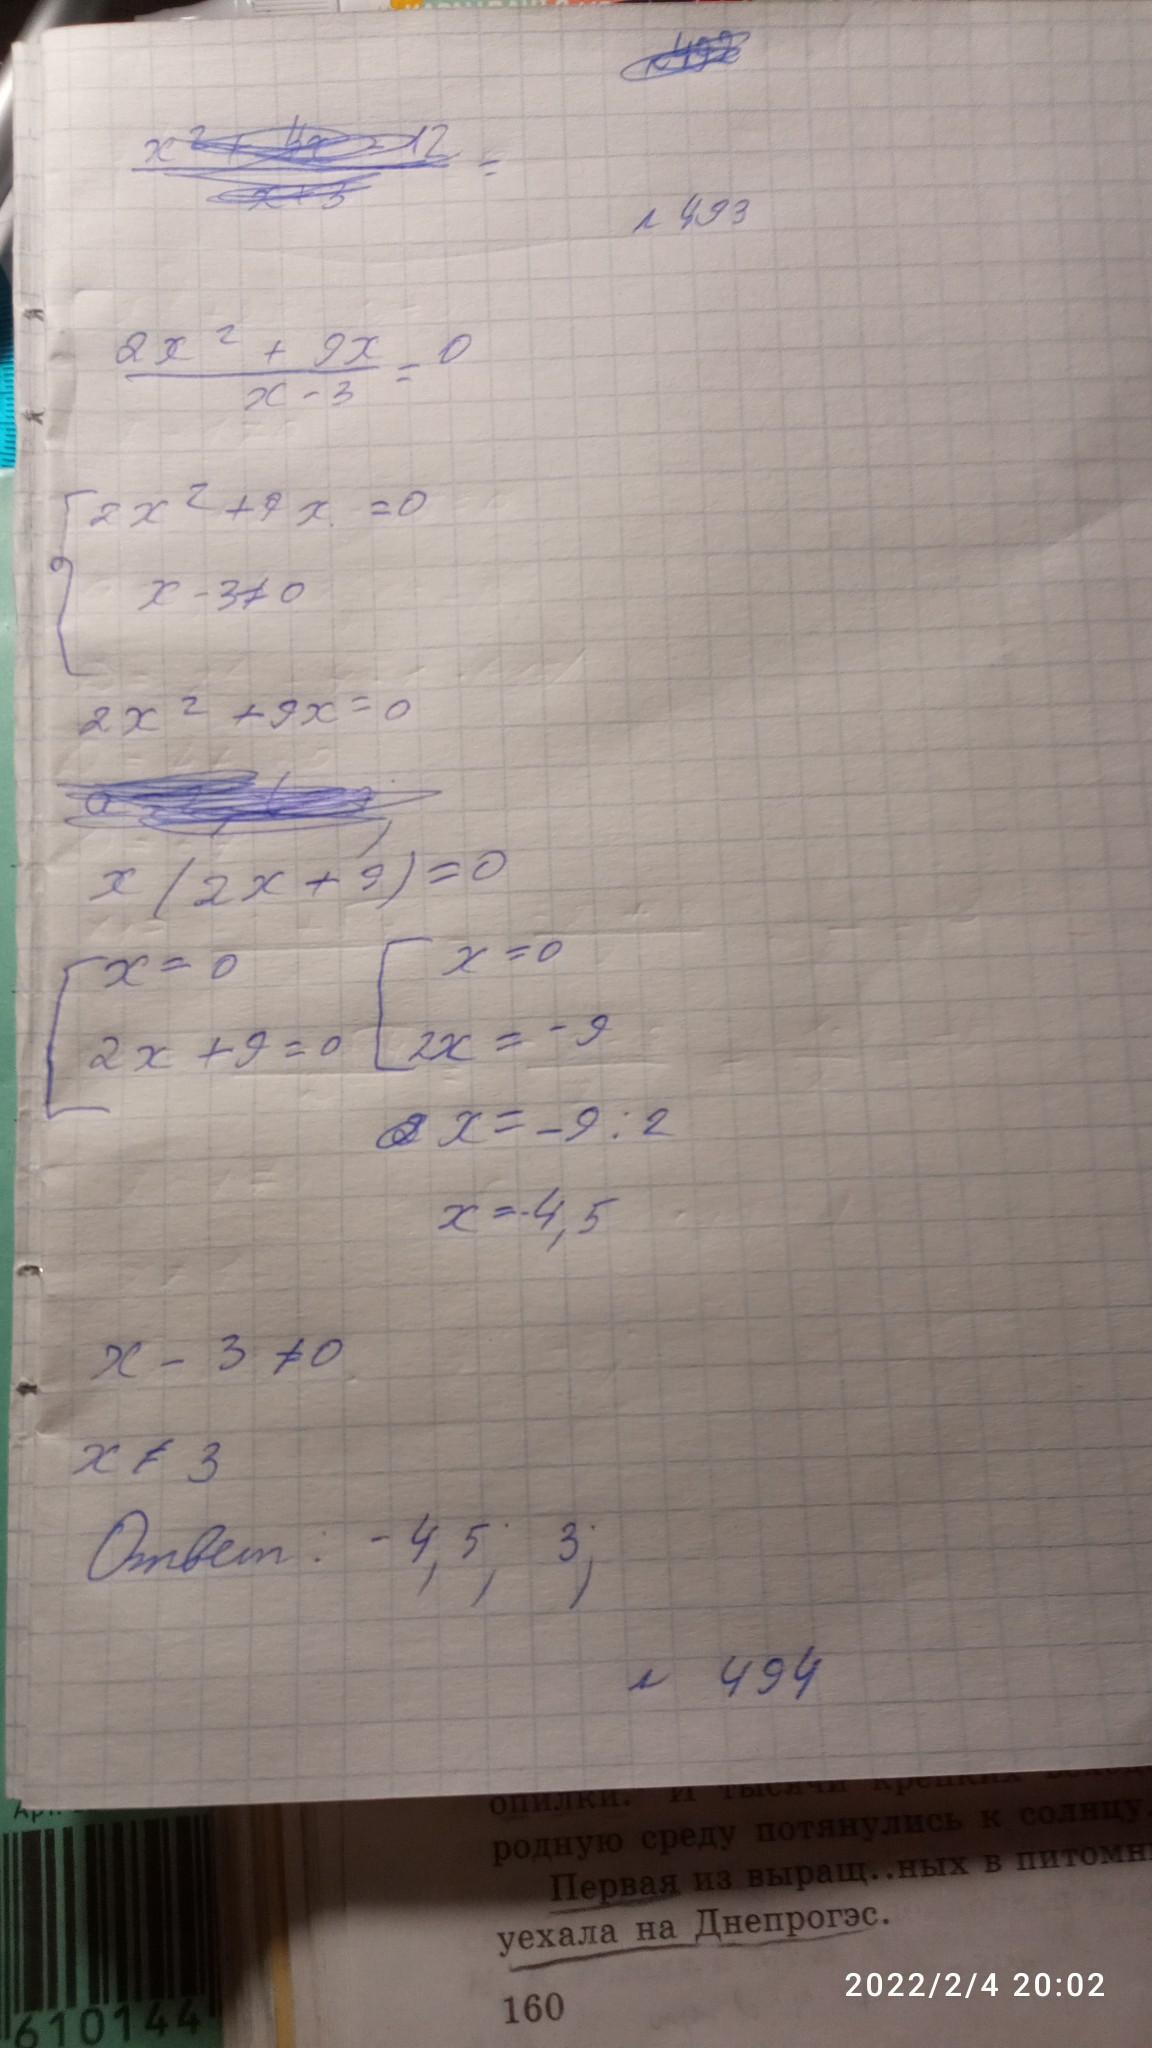 x² + 4x - 12
=
x + 3
№ 493
2x² + 9x
= 0
x - 3
2x² + 9x = 0
x - 3 ≠ 0
2x² + 9x = 0
x (2x + 9) = 0
x = 0 x = 0
2x + 9 = 0 2x = -9
x = -9 : 2
x = -4,5
x - 3 ≠ 0
x ≠ 3
Ответ: -4,5; 3;
№ 494
опилки. И тысячи крепких
родную среду потянулись к солнцу.
Первая из выращ..ных в питомн
уехала на Днепрогэс.
160
610144
2022/2/4 20:02